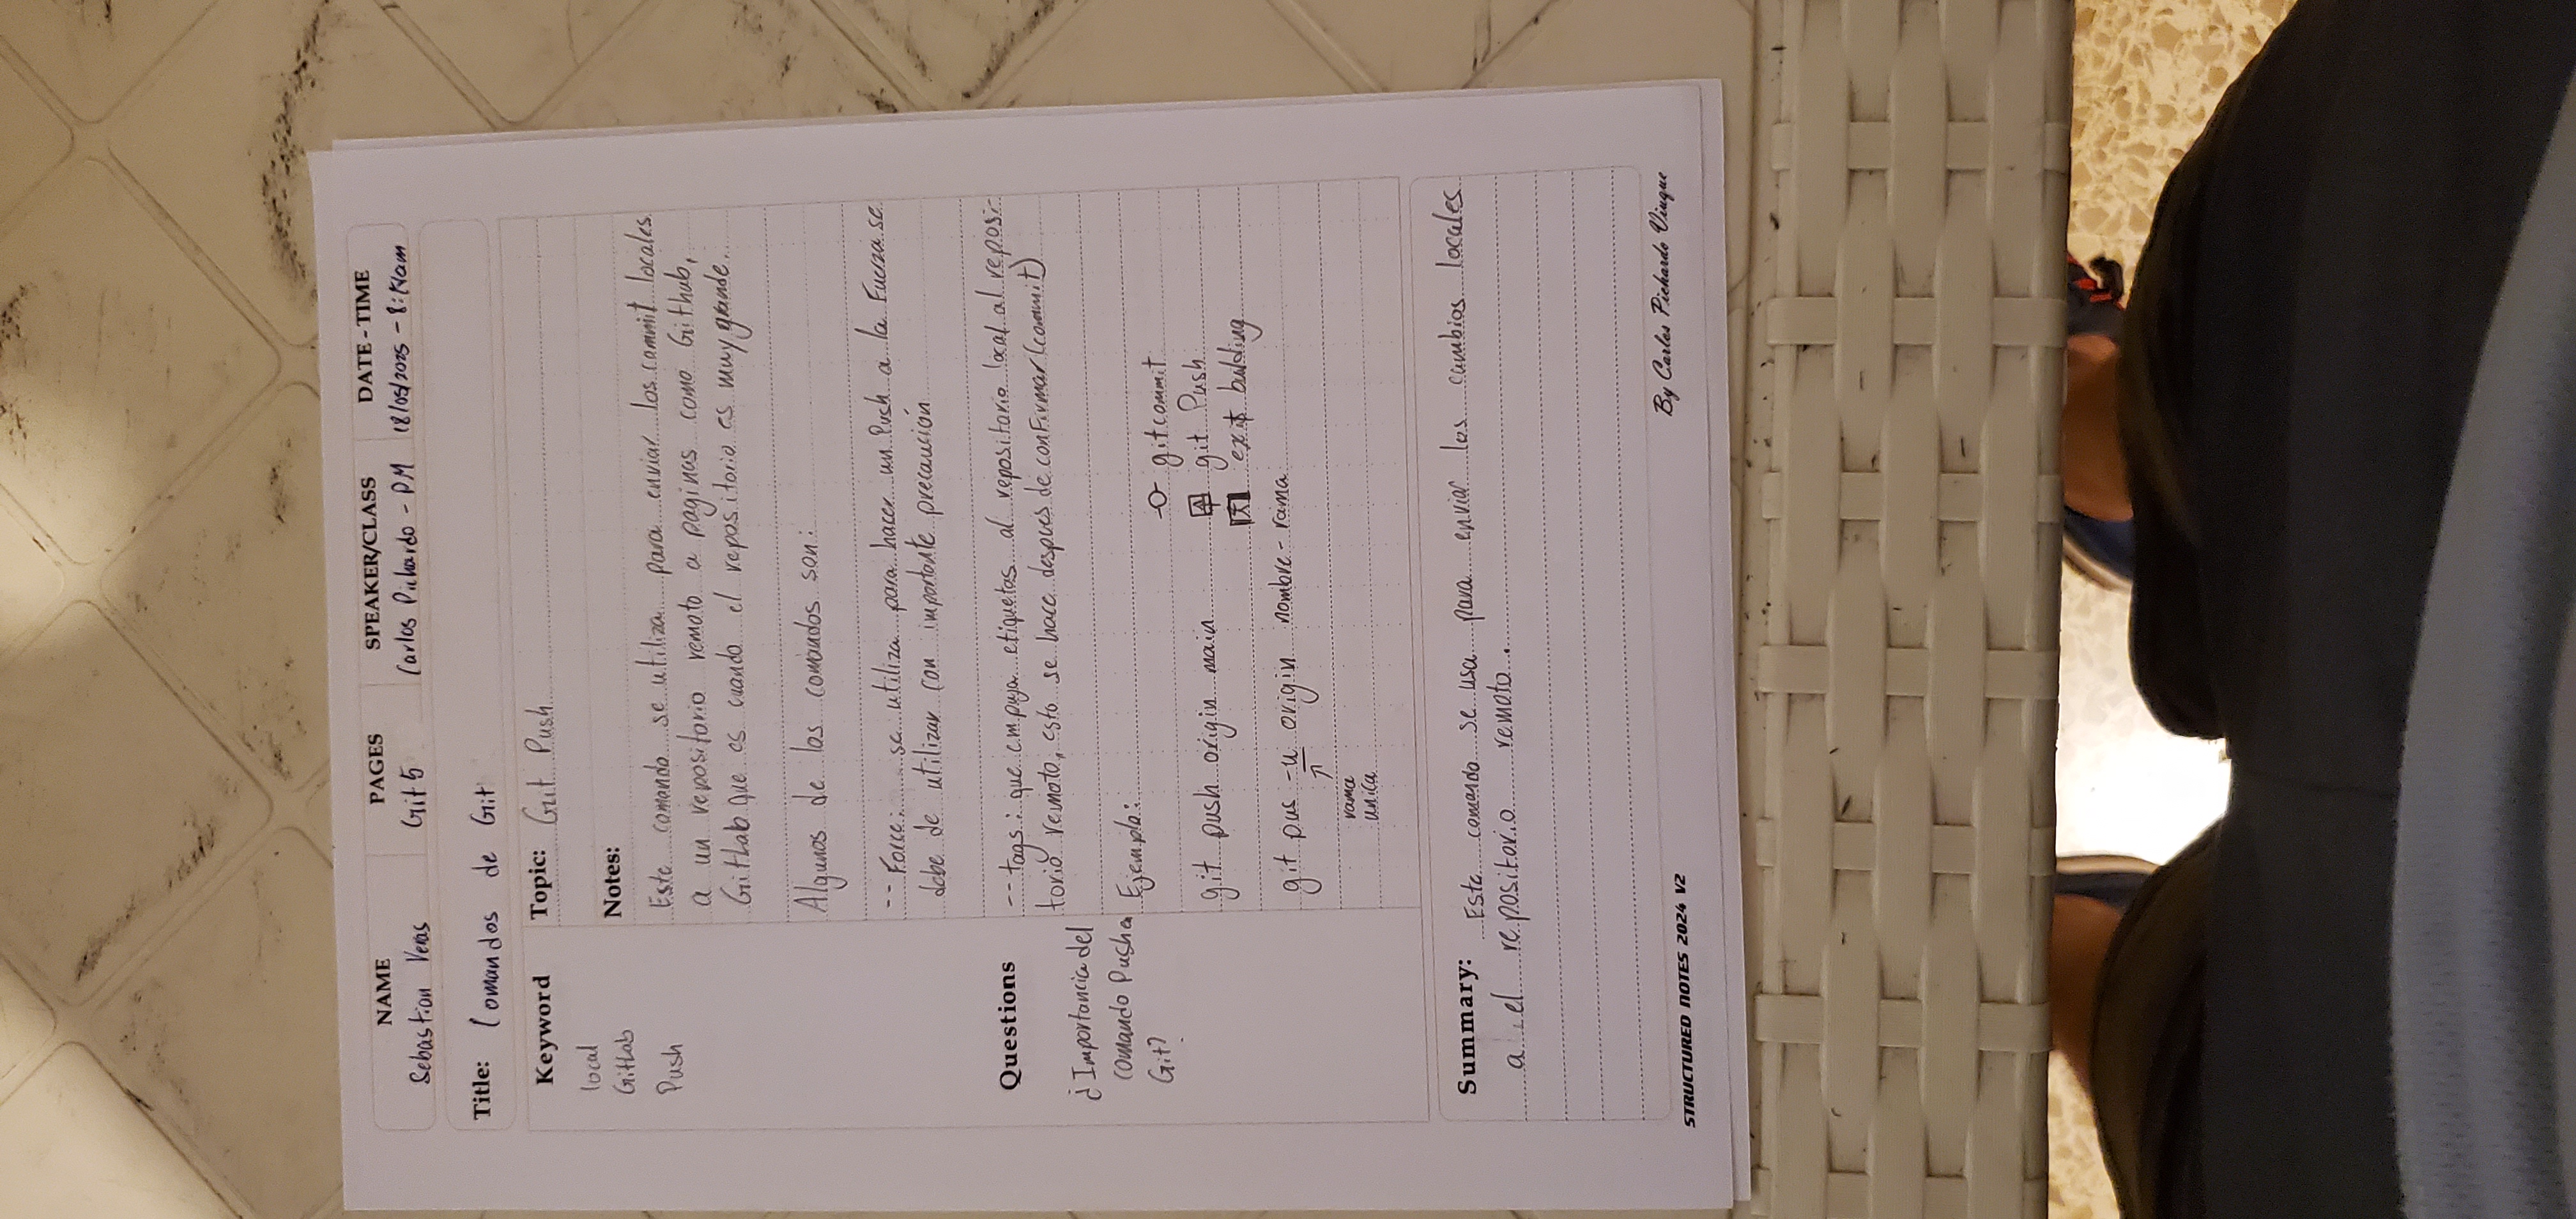 NAME PAGES SPEAKER/CLASS DATE-TIME
Sebastian Veras Git 5 Carlos Pichardo - PM 18/05/2025 -
Title: Comandos de Git
Keyword
local
GitLab
Push
Topic: Git Push
Notes:
Este comando se utiliza para enviar los commit locales
a un repositorio remoto a paginas como Github,
GitLab que es cuando el repositorio es muy grande.
Algunos de los comandos son:
-- Force: se utiliza para hacer un Push a la Fuerza se
debe de utilizar con importante precaución
-- tags: que empuja etiquetas al repositorio local al reposi-
torio remoto, esto se hace despues de confirmar (commit)
Questions
¿Importancia del
comando Push en
Git?
Ejemplo:
git commit
git push origin main git Push
exit bulding
git pus -u origin nombre-rama
rama
unica
Summary: Este comando se usa para enviar los cambios locales
a el repositorio remoto.
STRUCTURED NOTES 2024 V2 By Carlos Pichardo Viuque